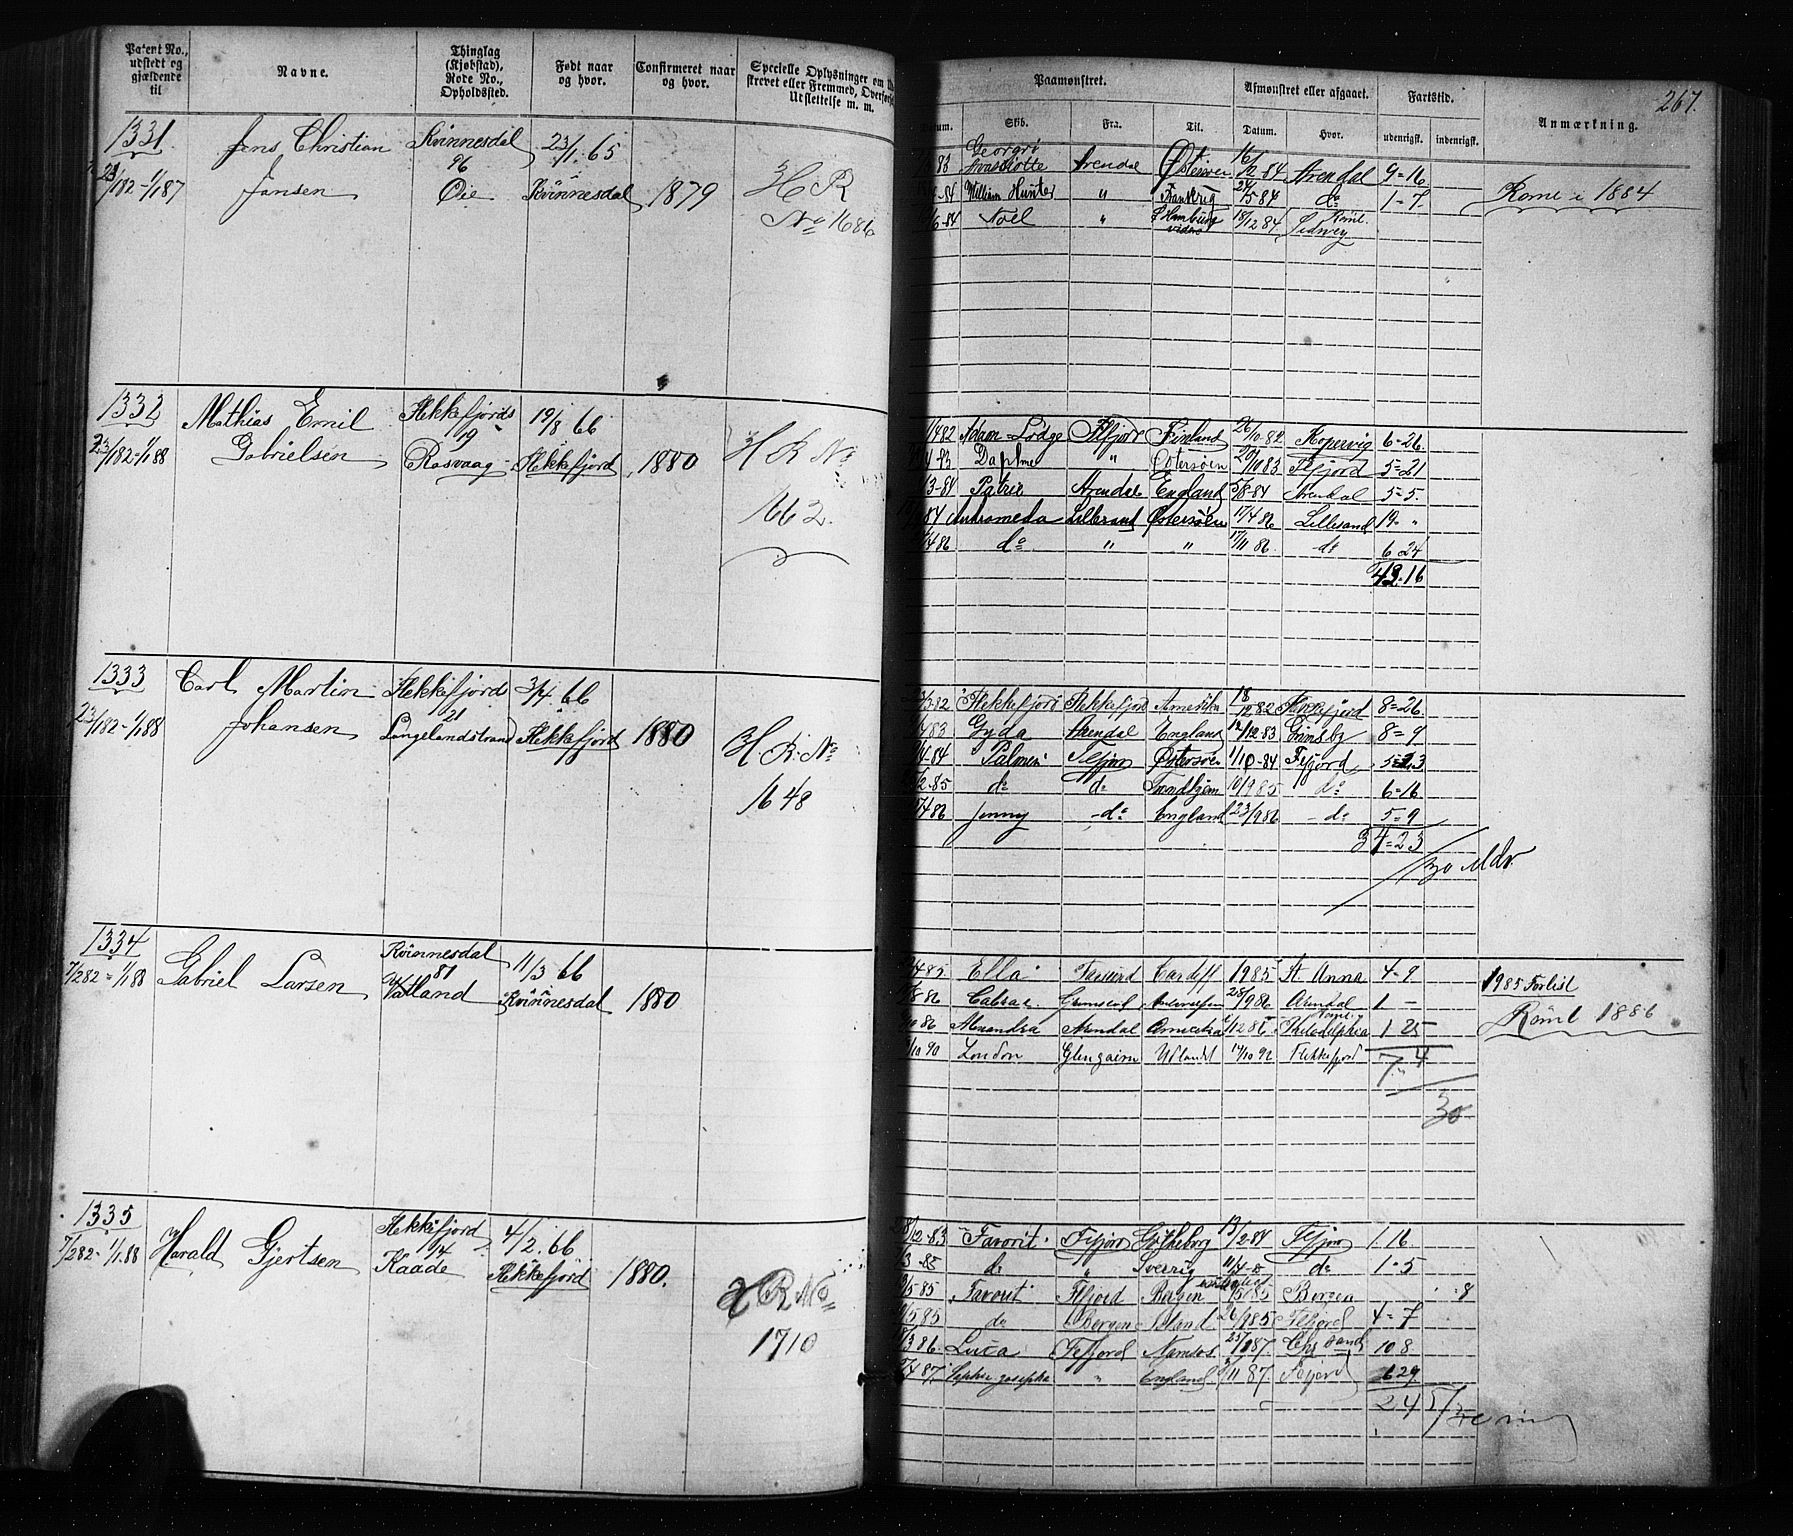 Patent No., udstedt og gjældende til
Navne.
Thinglag (Kjøbstad), Rode No., Opholdssted.
Født naar og hvor.
Confirmeret naar og hvor.
Specielle Oplysninger om
skrevet eller Fremmed, Overført
Udslettelse m. m.
Paamønstret.
Afmønstret eller afgaaet.
Fartstid.
267.
Datum. Skib. Fra. Til. Datum. Hvor. udenrigsk. indenrigsk. Anmærkning.
1331
Jens Christian Jansen
Kvinnesdal 96 Øie
23/1 65 Kvinnesdal
1879
H R No 1686
Arendal Østersøen 84 Arendal 9-16
84 William Hunter " Frankrig 84 do 1-7
6-84 Noel " Hamburg videre 18/12 84
Rømt i 1884
1332
23/1 82-1/1 88
Mathias Emil Gabrielsen
Flekkefjords 19 Rasvaag
19/8 66 Flekkefjord
1880
H R No 1662
82 Adam Lodge Ffjord Finland 26/10-82 Kopervig 6-26
Daphne " Østersøen 20/10 83 Ffjord 5=21
3-84 Patrie Arendal England 5/8-84 Arendal 5=5
84 Andromeda Lillesand Østersøen 17/4 86 Lillesand 19 "
4 86 do " " 17/11 86 do 6 24
43-16
1333
23/1 82-1/1 88
Carl Martin Johansen
Flekkefjords 21 Langelandstrand
3/4 66 Flekkefjord
1880
H R. No 1648
3 82 Flekkefjord Flekkefjord Amerika 82 Flekkefjord 8=26
83 Gyda Arendal England 12/12 83 Grimsby 8=9
4-84 Palmen Ffjord Østersøen 1/10-84 Ffjord 5=23
2-85 do do Trondhjem 10/9 85 do 6=16
4 86 Jenny do England 23/9 86 do 5=9
34=23
30 Mdr
1334
7/2 82-1/1 88
Gabriel Larsen
Kvinnesdal 87 Vatland
11/3 66 Kvinnesdal
1880
4 85 Ella Cardiff 1985 St. Anna 4-9
8 86 Antwerpen 28/9 86 Arendal 1 -
10 86 Alexandra Arendal Amerika 12 86 Philadelphia 1 25
10 90 London Udlandet 14/10 92 Flekkefjord
7. 4
30
1985 Forlist
Rømt 1886
1335
7/2 82-1/1 88
Harald Gjertsen
Flekkefjord 14 Kaade
4/2 66 Flekkefjord
1880.
H R No 1710
12-83 Favorit Ffjord Gøtheborg 13/2-84 Ffjord 1.16
3-85 do " Sverrig do 1-5
5 85 Favorit Ffjord Bergen 5 85 Bergen " 8
5 85 do Bergen Island 26/9 85 Ffjord 4=7
3 86 Luca Ffjord Namsos 87 Chrsand 10 8
4 87 " England 11 87 Ffjord 6 29
24 5